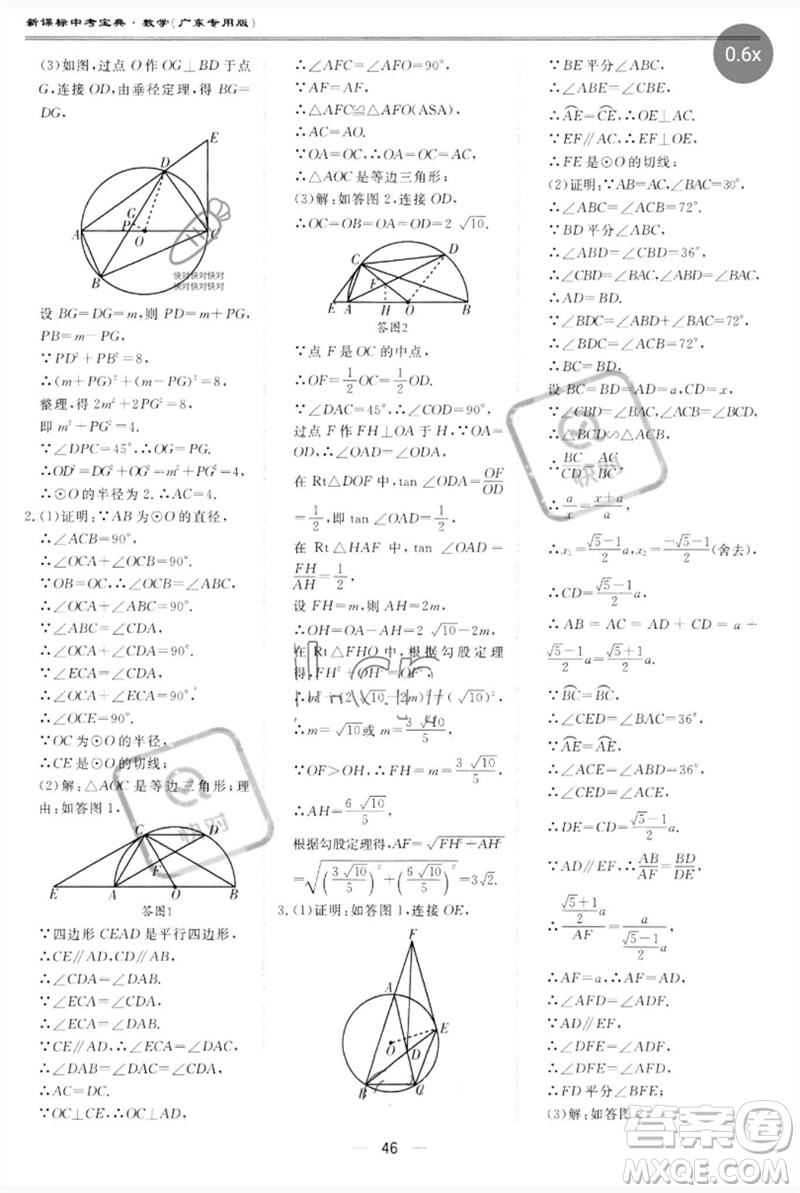 新课标中考宝典·数学(广东专用版)
0.6x
(3)如图,过点O作OG⊥BD于点
G,连接OD,由垂径定理,得BG=
DG,
E
D
G
P
A
O
C
B
快对快对快对
快对快对快对
设BG=DG=m,则PD=m+PG,
PB=m-PG,
∵PD²+PB²=8,
∴(m+PG)²+(m-PG)²=8,
整理,得2m²+2PG²=8,
即m²+PG²=4.
∵∠DPC=45°,∴OG=PG,
∴OD²=DG²+OG²=m²+PG²=4,
∴⊙O的半径为2.
2.(1)证明:∵AB为⊙O的直径,
∴∠ACB=90°,
∴∠OCA+∠OCB=90°.
∵OB=OC,∴∠OCB=∠OBC,
∴∠OCA+∠ABC=90°.
∵∠ABC=∠CDA,
∴∠OCA+∠CDA=90°.
∵∠ECA=∠CDA,
∴∠OCA+∠ECA=90°,
∴∠OCE=90°.
∵OC为⊙O的半径,
∴CE是⊙O的切线;
(2)解:△AOC是等边三角形;理
由:如答图1,
C D
F
E A O B
答图1
∵四边形CEAD是平行四边形,
∴CE∥AD,CD∥AB,
∴∠CDA=∠DAB.
∵CE∥AD,
∴∠ECA=∠CAD.
∵∠ECA=∠CDA,
∴∠CDA=∠CAD,
∴AC=DC.
∵OC⊥CE,∴OC⊥AD,
∴∠AFC=∠AFO=90°,
∵AF=AF,
∴△AFC≌△AFO(ASA),
∴AC=AO.
∵OA=OC,∴AC=OA=OC,
∴△AOC是等边三角形;
(3)解:如答图2,连接OD,
∴OC=OB=OA=OD=2√10.
C D
F
E A H O B
答图2
∵点F是OC的中点,
∴OF=1/2OC=1/2OD.
∵∠DAC=45°,∴∠COD=90°,
过点F作FH⊥OA于H,∵OA=
OD,∴∠OAD=∠ODA,
在Rt△DOF中,tan∠ODA=OF/OD
=1/2,即tan∠OAD=1/2,
在Rt△HAF中,tan∠OAD=
FH/AH=1/2,
设FH=m,则AH=2m,
∴OH=OA-AH=2√10-2m,
在Rt△FHO中,根据勾股定理
得,FH²+OH²=OF²,
∴m²+(2√10-2m)²=(√10)²,
∴m=√10或m=3√10/5,
∵OF>OH,∴FH=m=3√10/5,
∴AH=6√10/5,
根据勾股定理得,AF=√(FH²+AH²)
=√((3√10/5)²+(6√10/5)²)=3√2.
3.(1)证明:如答图1,连接OE,
F
A
E
O
D
B C
∵BE平分∠ABC,
∴∠ABE=∠CBE,
∴AE=CE,∴OE⊥AC.
∵EF∥AC,∴EF⊥OE,
∴FE是⊙O的切线;
(2)证明:∵AB=AC,∠BAC=30°,
∴∠ABC=∠ACB=72°.
∵BD平分∠ABC,
∴∠ABD=∠CBD=36°,
∴∠CBD=∠BAC=∠ABD,
∴AD=BD.
∴∠BDC=∠BAC+∠ABD=72°,
∴∠BDC=∠ACB=72°,
∴BC=BD.
设BC=BD=AD=a,CD=x,
∵∠CBD=∠BAC,∠BCD=∠ACB,
∴△BDC∽△ABC,
∴BC/CD=AC/BC,
∴a/x=(x+a)/a,
∴x₁=(√5-1)/2a,x₂=(-√5-1)/2(舍去),
∴CD=(√5-1)/2a,
∴AB=AC=AD+CD=a+
(√5-1)/2a=(√5+1)/2a.
∵BC=BC,
∴∠CED=∠BAC=36°,
∵AE=AE,
∴∠ACE=∠ABE=36°,
∴∠CED=∠ACE,
∴DE=CD=(√5-1)/2a.
∵AD∥EF,∴AB/AF=BD/DE,
∴((√5+1)/2a)/AF=a/((√5-1)/2a),
∴AF=a,∴AF=AD,
∴∠AFD=∠ADF.
∵AD∥EF,
∴∠DFE=∠ADF,
∴∠AFD=∠DFE,
∴FD平分∠BFE;
(3)解:如答图2,
46
快对
快对
答案圈
MXQE.COM